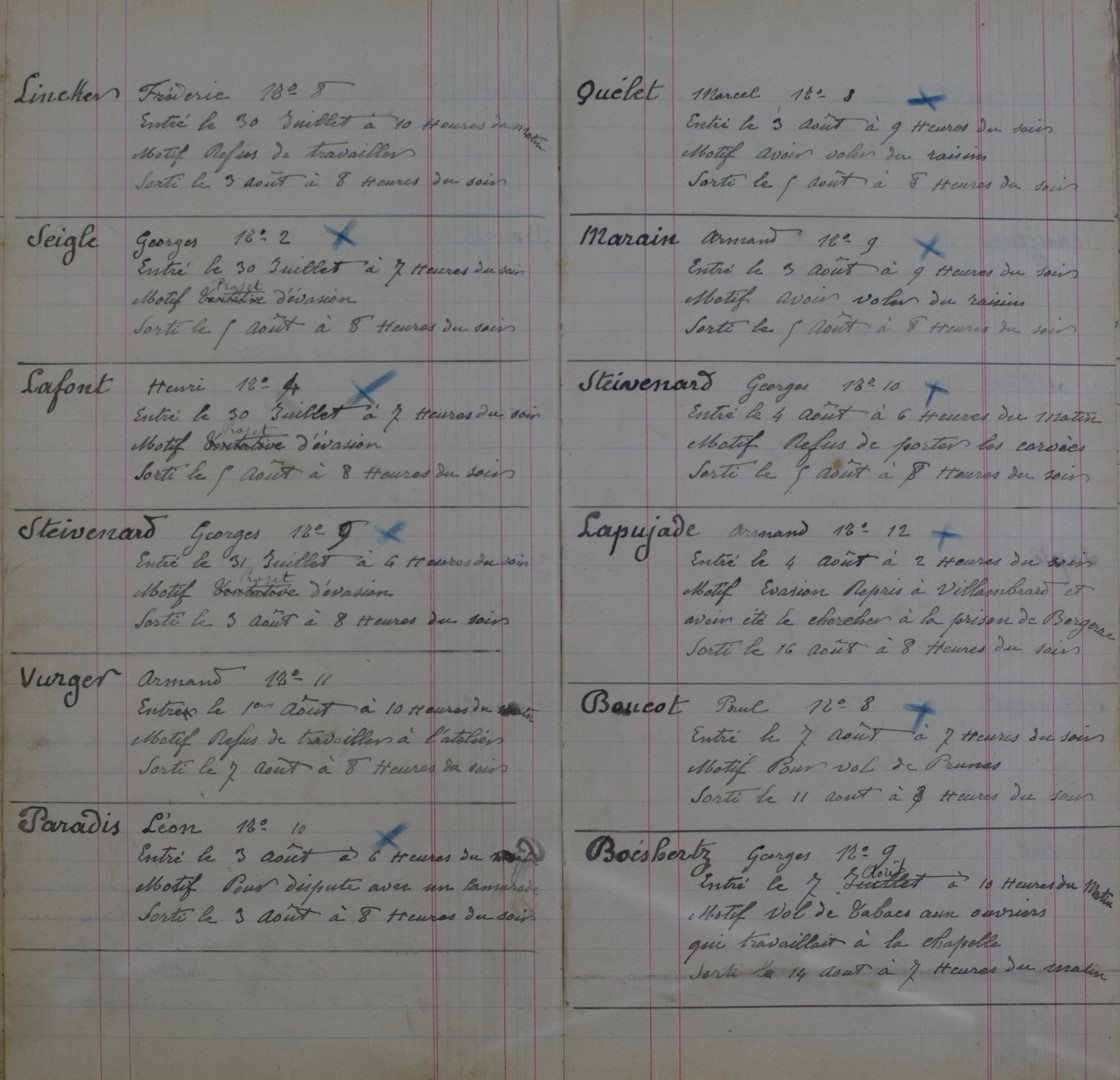 Lincker Fréderic Nº 8
Entré le 30 Juillet à 10 Heures du matin
Motif Refus de travailler
Sorti le 3 Août à 8 Heures du soir
Seigle Georges Nº 2
Entré le 30 Juillet à 7 Heures du soir
Projet
Motif Tentative d'évasion
Sorti le 5 Août à 8 Heures du soir
Lafont Henri Nº 4
Entré le 30 Juillet à 7 Heures du soir
Projet
Motif Tentative d'évasion
Sorti le 5 Août à 8 Heures du soir
Steivenard Georges Nº 9
Entré le 31 Juillet à 6 Heures du soir
Projet
Motif Tentative d'évasion
Sorti le 3 Août à 8 Heures du soir
Vurger Armand Nº 11
Entré le 1er Août à 10 Heures du
Motif Refus de travailler à l'atelier
Sorti le 7 Août à 8 Heures du soir
Paradis Léon Nº 10
Entré le 3 Août à 6 Heures du
Motif Pour dispute avec un camarade
Sorti le 3 Août à 8 Heures du soir
Quélet Marcel Nº 8
Entré le 3 Août à 9 Heures du soir
Motif avoir voler du raisins
Sorti le 5 Août à 8 Heures du soir
Marain Armand Nº 9
Entré le 3 Août à 9 Heures du soir
Motif avoir voler du raisins
Sorti le 5 Août à 8 Heures du soir
Steivenard Georges Nº 10
Entré le 4 Août à 6 Heures du Matin
Motif Refus de porter les corvées
Sorti le 5 Août à 8 Heures du soir
Lapujade Armand Nº 12
Entré le 4 Août à 2 Heures du soir
Motif Evasion Repris à Villambrard et
avoir été le chercher à la prison de Bergerac
Sorti le 16 Août à 8 Heures du soir
Boucot Paul Nº 8
Entré le 7 Août à 7 Heures du soir
Motif Pour vol de Prunes
Sorti le 11 Août à 8 Heures du soir
Boéshertz Georges Nº 9
Août
Entré le 7 Juillet à 10 Heures du Matin
Motif Vol de Tabacs aux ouvriers
qui travaillait à la chapelle
Sorti le 14 Août à 7 Heures du matin